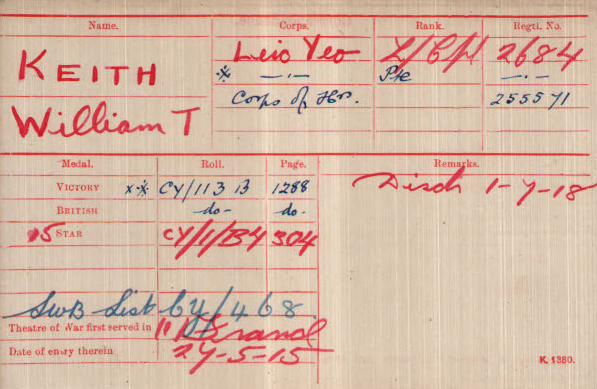 Name. Corps. Rank. Regtl. No.
KEITH Leic Yeo L/Cpl 2684
※ —·— Pte —·—
William T Corps of Hrs. 255571
Medal. Roll. Page. Remarks.
VICTORY x※ CY/113 B 1288 Disch 1-7-18
BRITISH -do- do.
15 STAR CY/1/B4 304
SWB List CY/468
Theatre of War first served in France
Date of entry therein 24-5-15
K. 1380.